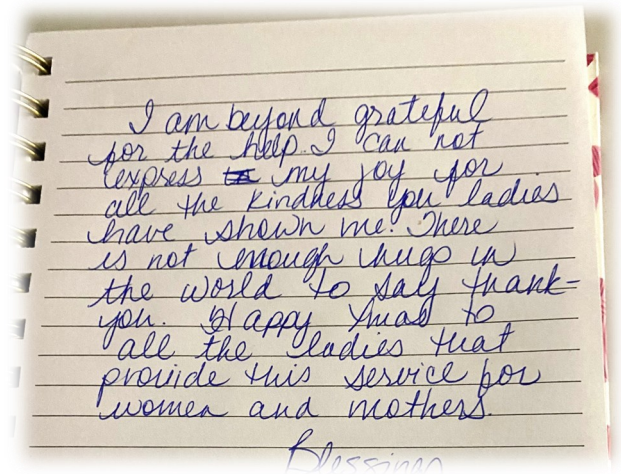 I am beyond grateful
for the help. I can not
express my joy for
all the kindness you ladies
have shown me. There
is not enough hugs in
the world to say thank-
you. Happy Xmas to
all the ladies that
provide this service for
women and mothers.
Blessings